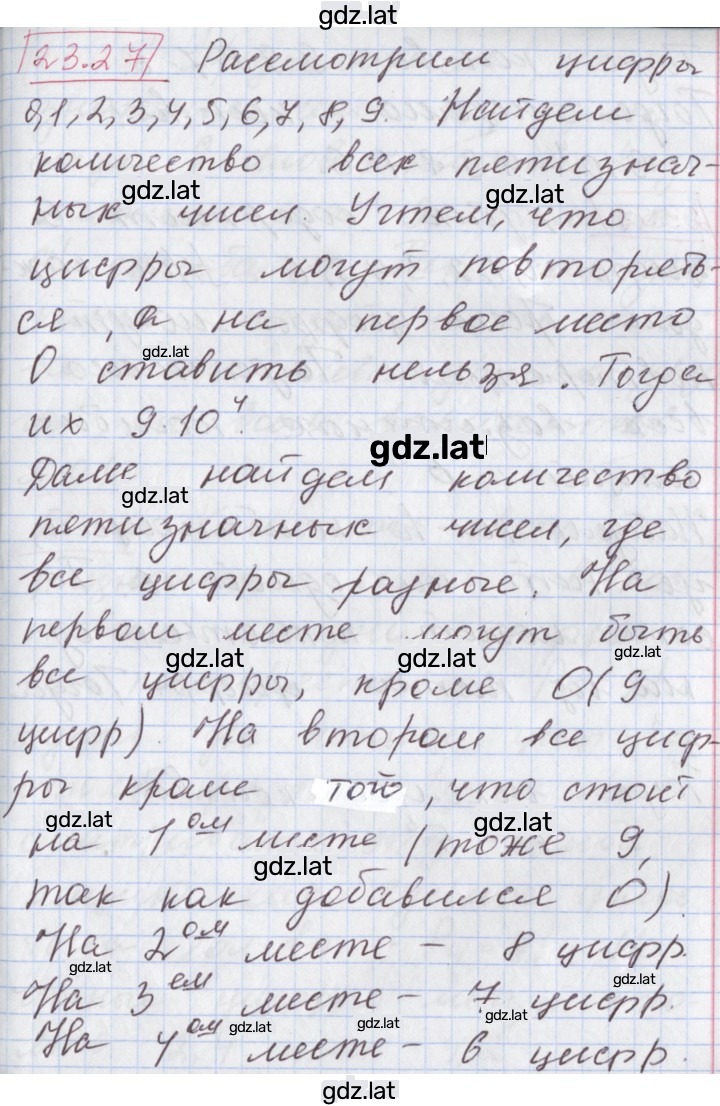 gdz.lat
23.27 Рассмотрим цифры
0,1,2,3,4,5,6,7,8,9. Найдем
количество всех пятизнач-
gdz.lat gdz.lat
ных чисел. Учтем, что
цифры могут повторять-
ся, а на первое место
gdz.lat
0 ставить нельзя. Тогда
их 9·10⁴.
gdz.lat
Далее найдем количество
gdz.lat
пятизначных чисел, где
все цифры разные. На
первом месте могут быть
gdz.lat gdz.lat
все цифры, кроме 0 (9
цифр). На втором все циф-
ры кроме того, что стоит
gdz.lat gdz.lat
на 1ом месте (тоже 9,
gdz.lat
так как добавился 0).
На 2ом месте – 8 цифр.
gdz.lat gdz.lat
На 3ем месте – 7 цифр.
gdz.lat gdz.lat gdz.lat
На 4ом месте – 6 цифр.
gdz.lat